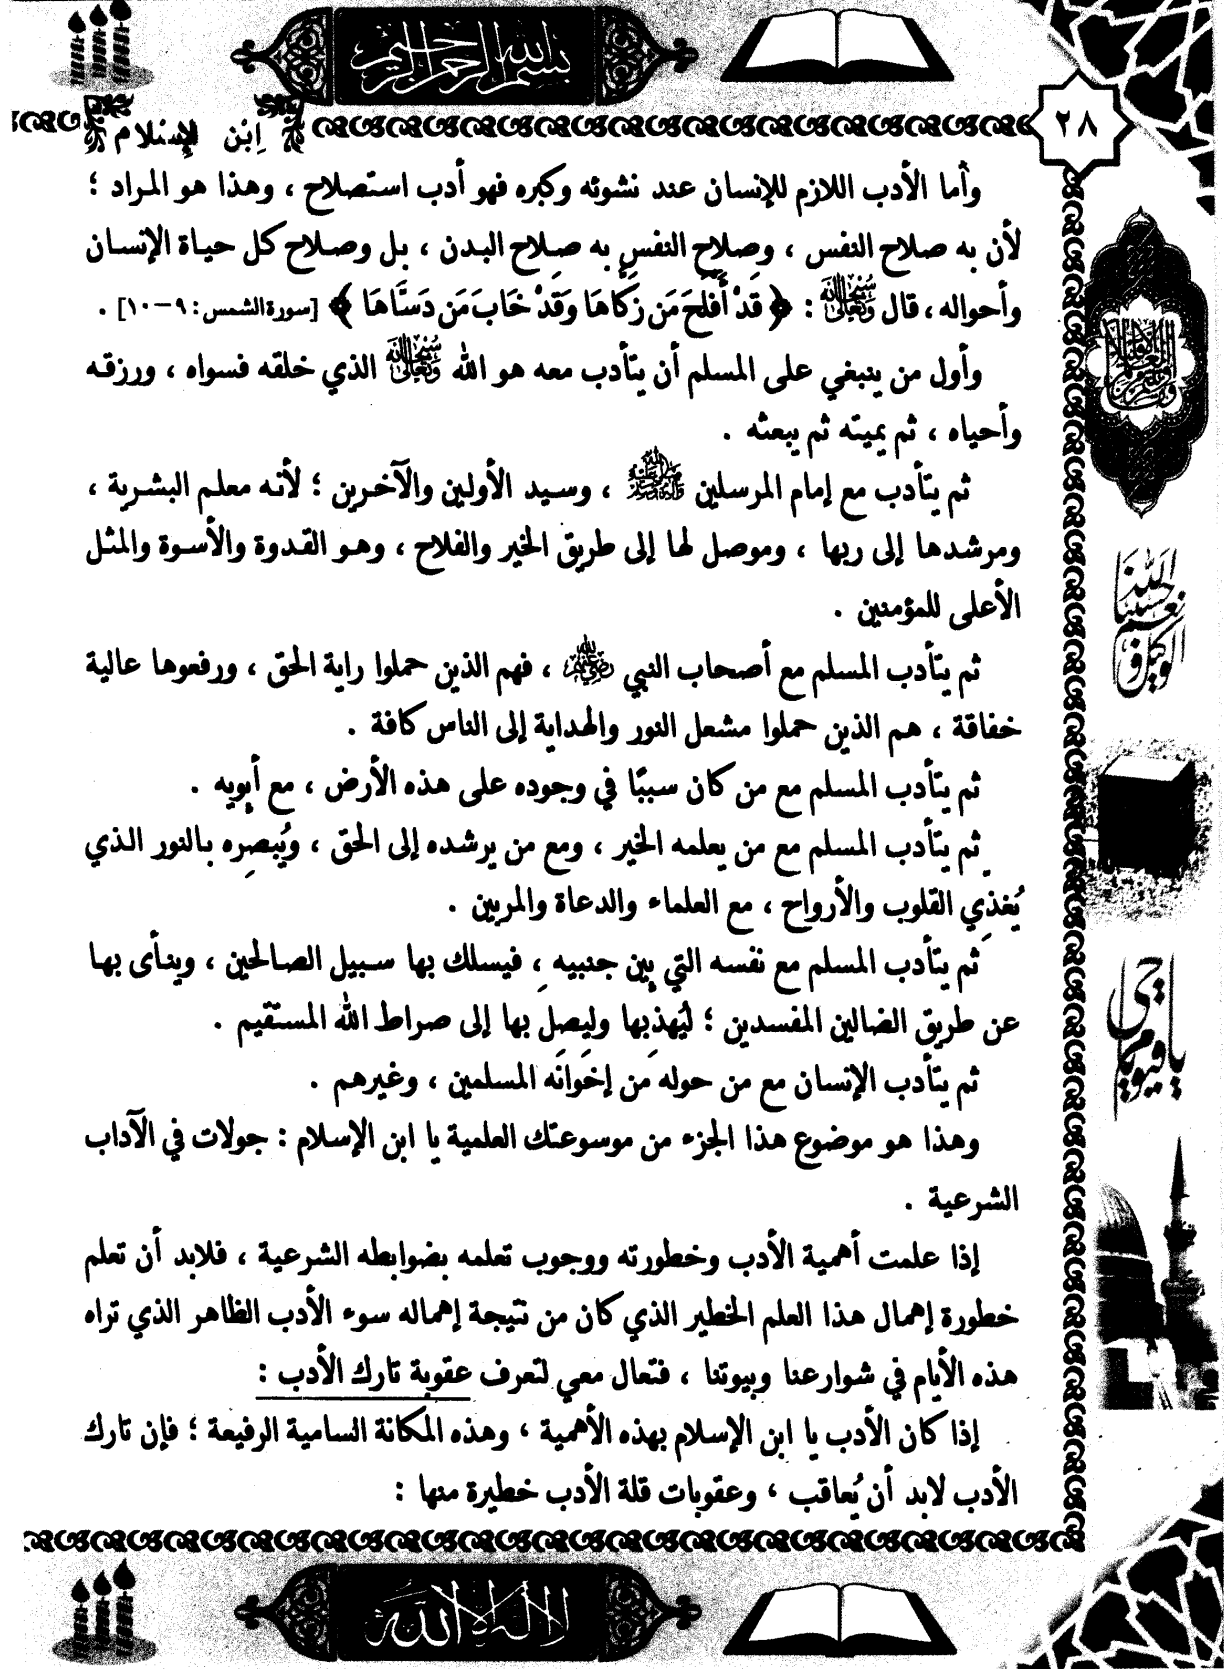 بسم الله الرحمن الرحيم
٢٨
ابن الإسلام
وأما الأدب اللازم للإنسان عند نشوئه وكبره فهو أدب استصلاح ، وهذا هو المراد ؛
لأن به صلاح النفس ، وصلاح النفس به صلاح البدن ، بل وصلاح كل حياة الإنسان
وأحواله ، قال سبحانه وتعالى : ﴿ قَدْ أَفْلَحَ مَن زَكَّاهَا وَقَدْ خَابَ مَن دَسَّاهَا ﴾ [سورة الشمس : ٩-١٠] .
وأول من ينبغي على المسلم أن يتأدب معه هو الله سبحانه وتعالى الذي خلقه فسواه ، ورزقه
وأحياه ، ثم يميته ثم يبعثه .
ثم يتأدب مع إمام المرسلين ﷺ ، وسيد الأولين والآخرين ؛ لأنه معلم البشرية ،
ومرشدها إلى ربها ، وموصل لها إلى طريق الخير والفلاح ، وهو القدوة والأسوة والمثل
الأعلى للمؤمنين .
ثم يتأدب المسلم مع أصحاب النبي رضي الله عنهم ، فهم الذين حملوا راية الحق ، ورفعوها عالية
خفاقة ، هم الذين حملوا مشعل النور والهداية إلى الناس كافة .
ثم يتأدب المسلم مع من كان سببًا في وجوده على هذه الأرض ، مع أبويه .
ثم يتأدب المسلم مع من يعلمه الخير ، ومع من يرشده إلى الحق ، ويُبصره بالنور الذي
يُغذي القلوب والأرواح ، مع العلماء والدعاة والمربين .
ثم يتأدب المسلم مع نفسه التي بين جنبيه ، فيسلك بها سبيل الصالحين ، وينأى بها
عن طريق الضالين المفسدين ؛ ليُهذبها وليصل بها إلى صراط الله المستقيم .
ثم يتأدب الإنسان مع من حوله من إخوانه المسلمين ، وغيرهم .
وهذا هو موضوع هذا الجزء من موسوعتك العلمية يا ابن الإسلام : جولات في الآداب
الشرعية .
إذا علمت أهمية الأدب وخطورته ووجوب تعلمه بضوابطه الشرعية ، فلابد أن تعلم
خطورة إهمال هذا العلم الخطير الذي كان من نتيجة إهماله سوء الأدب الظاهر الذي تراه
هذه الأيام في شوارعنا وبيوتنا ، فتعال معي لتعرف عقوبة تارك الأدب :
إذا كان الأدب يا ابن الإسلام بهذه الأهمية ، وهذه المكانة السامية الرفيعة ؛ فإن تارك
الأدب لابد أن يُعاقب ، وعقوبات قلة الأدب خطيرة منها :
حسبنا الله ونعم الوكيل
يا حي يا قيوم
لا إله إلا الله